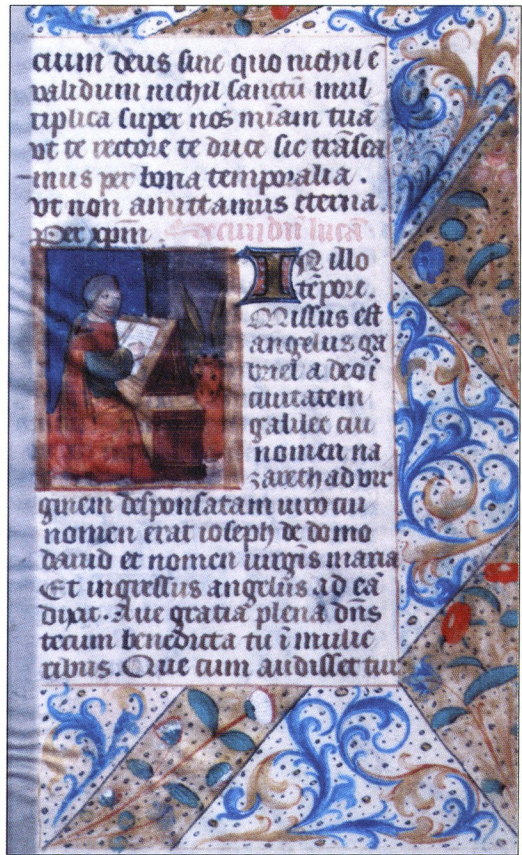 cium deus sine quo nichil ē
validum nichil sanctū mul
tiplica super nos miām tuā
vt te rectore te duce sic trāsea
mus per bona temporalia .
vt non amittamus eterna .
Per xpm̄ . Secundū lucā
IN illo
tēpore .
Missus est
angelus ga
briel a deo ī
ciuitatem
galilee cui
nomen na
zareth ad vir
ginem desponsatam uiro cui
nomen erat ioseph de domo
dauid et nomen uirgīs maria
Et ingressus angelus ad eā
dixit . Aue gratia plena dn̄s
tecum benedicta tu ī mulie
ribus . Que cum audisset tur